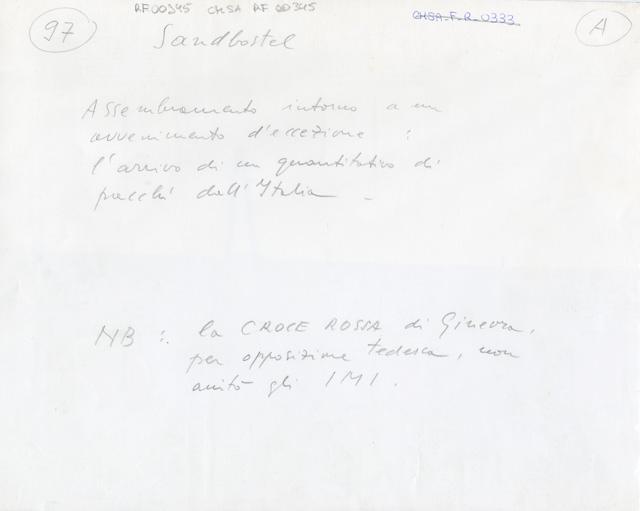 97
RF00345 CHSA RF 00345
CHSA-F-R-0333
A
Sandbostel
Assembramento intorno a un
avvenimento d'eccezione :
l'arrivo di un quantitativo di
pacchi dall'Italia -
NB : la CROCE ROSSA di Ginevra,
per opposizione tedesca, non
aiutò gli IMI.